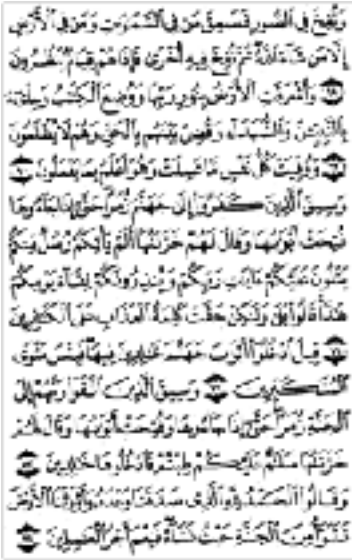 وَنُفِخَ فِي الصُّورِ فَصَعِقَ مَن فِي السَّمَوَاتِ وَمَن فِي الْأَرْضِ
إِلَّا مَن شَاءَ اللَّهُ ثُمَّ نُفِخَ فِيهِ أُخْرَى فَإِذَا هُمْ قِيَامٌ يَنظُرُونَ
۝ وَأَشْرَقَتِ الْأَرْضُ بِنُورِ رَبِّهَا وَوُضِعَ الْكِتَبُ وَجِاْىءَ
بِالنَّبِيِّنَ وَالشُّهَدَاءِ وَقُضِيَ بَيْنَهُم بِالْحَقِّ وَهُمْ لَا يُظْلَمُونَ
۝ وَوُفِّيَتْ كُلُّ نَفْسٍ مَّا عَمِلَتْ وَهُوَ أَعْلَمُ بِمَا يَفْعَلُونَ ۝
وَسِيقَ الَّذِينَ كَفَرُوا إِلَى جَهَنَّمَ زُمَرًا حَتَّى إِذَا جَاءُوهَا
فُتِحَتْ أَبْوَابُهَا وَقَالَ لَهُمْ خَزَنَتُهَا أَلَمْ يَأْتِكُمْ رُسُلٌ مِّنكُمْ
يَتْلُونَ عَلَيْكُمْ ءَايَتِ رَبِّكُمْ وَيُنذِرُونَكُمْ لِقَاءَ يَوْمِكُمْ
هَذَا قَالُوا بَلَى وَلَكِنْ حَقَّتْ كَلِمَةُ الْعَذَابِ عَلَى الْكَفِرِينَ
۝ قِيلَ ادْخُلُوا أَبْوَبَ جَهَنَّمَ خَلِدِينَ فِيهَا فَبِئْسَ مَثْوَى
الْمُتَكَبِّرِينَ ۝ وَسِيقَ الَّذِينَ اتَّقَوْا رَبَّهُمْ إِلَى
الْجَنَّةِ زُمَرًا حَتَّى إِذَا جَاءُوهَا وَفُتِحَتْ أَبْوَابُهَا وَقَالَ لَهُمْ
خَزَنَتُهَا سَلَمٌ عَلَيْكُمْ طِبْتُمْ فَادْخُلُوهَا خَلِدِينَ ۝
وَقَالُوا الْحَمْدُ لِلَّهِ الَّذِي صَدَقَنَا وَعْدَهُ وَأَوْرَثَنَا الْأَرْضَ
نَتَبَوَّأُ مِنَ الْجَنَّةِ حَيْثُ نَشَاءُ فَنِعْمَ أَجْرُ الْعَمِلِينَ ۝